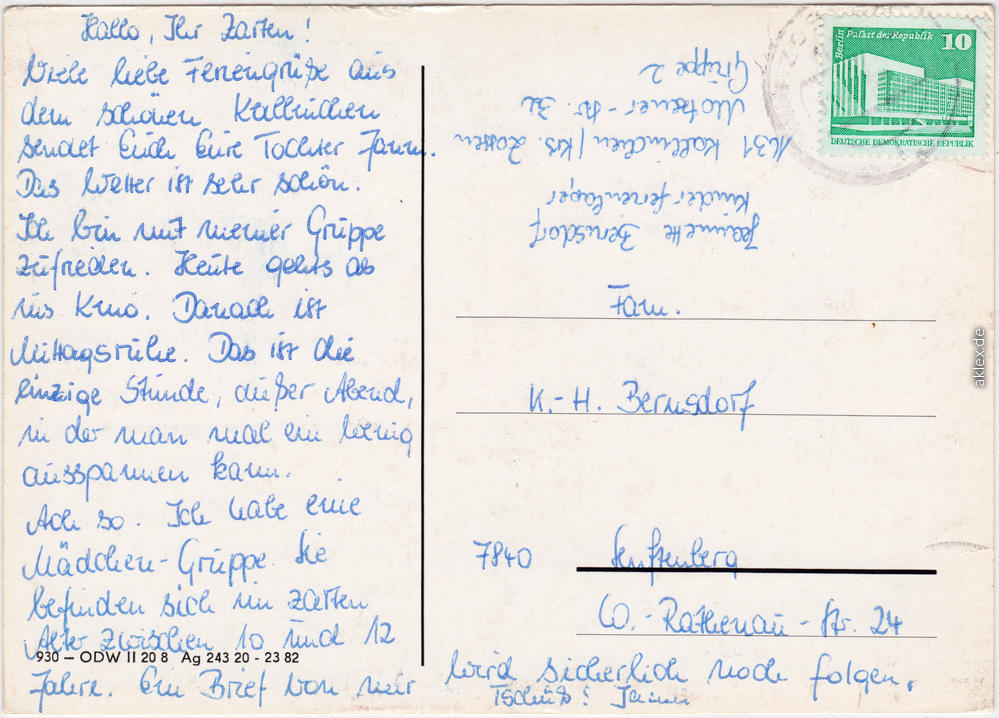 Hallo, Ihr Zarten!
Viele liebe Feriengrüße aus
dem schönen Kallinchen
sendet Euch Eure Tochter Janni.
Das Wetter ist sehr schön.
Ich bin mit meiner Gruppe
zufrieden. Heute gehts ab
ins Kino. Danach ist
Mittagsruhe. Das ist die
einzige Stunde, außer Abend,
in der man mal ein wenig
ausspannen kann.
Ach so. Ich habe eine
Mädchen-Gruppe. Sie
befinden sich im zarten
Alter zwischen 10 und 12
930 — ODW II 20 8 Ag 243 20 - 23 82
Jahre. Ein Brief von mir
wird sicherlich noch folgen.
Tschüß! Janni
Berlin
Palast der Republik
10
DEUTSCHE DEMOKRATISCHE REPUBLIK
Jeannette Bernsdorf
Kinderferienlager
1631 Kallinchen / Krs. Zossen
Motzener-Str. 32
Gruppe 2
Fam.
K.-H. Bernsdorf
7840 Senftenberg
W.-Rathenau-Str. 24
aklex.de